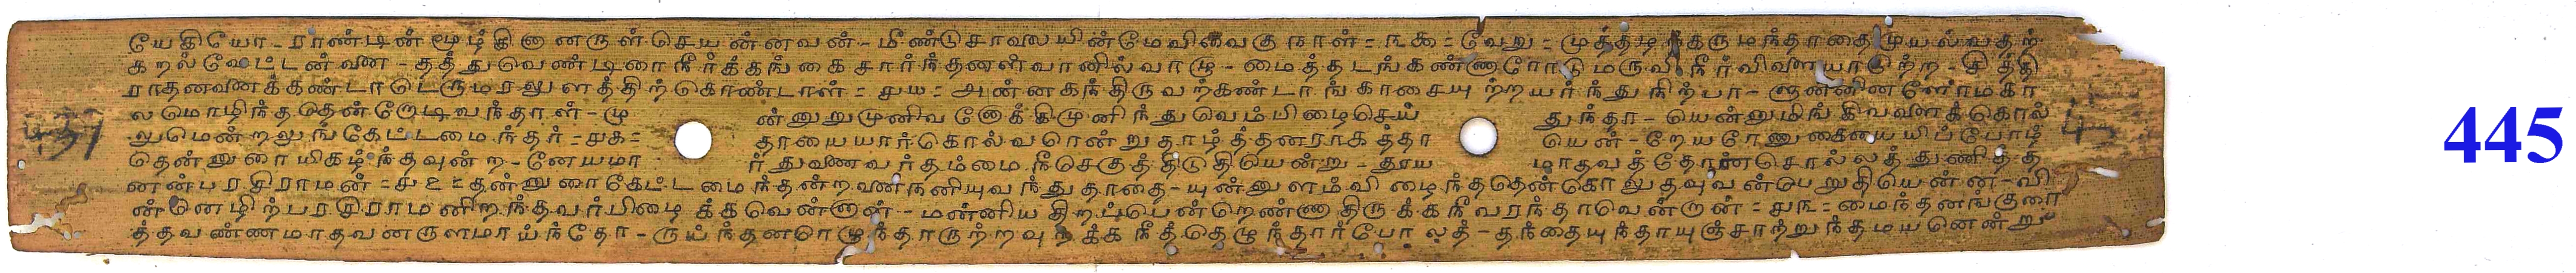 யேகியோ - ராண்டின் மூழ்கினானருள் செயன்னவன் - மீண்டுசாவலயின்மேவி வைகு நாள் = ௩௯ = வேறு = முத்தக தருமந்தாதை முயல்வதற்
கறல் வேட்டன்வண - தத்துவெண்டிரை நீர்க்கங்கைசார்ந்தனள்வானில்வாழு - மைத்தடங்கண்ணாரோடு மருவி நீர்விளையாடுற்ற - சித்தி
ராதனவணக்கண்டாடெருமரலுளத்திற்கொண்டாள் = ௪௰ = அண்ணகந்திருவற்கண்டாங்காசையுற்றயர்ந்து நிற்பா - ளுன்னினளோமகா
லமொழிந்ததென்றேடிவந்தாள் - மு ன்னுறுமுனிவனோக்கிமுனிந்துவெம்பிழைசெய் துந்தா - யென்னுமிங்கிவளைக்கொல்
லுமென்றலுங்கேட்டமைந்தர் = ௪௧ = தாயையார்கொல்வரென்றுதாழ்த்தனராகத்தா யென் - றேயரேணுகையையிப்போழ்
தென்னுரையிகழ்ந்தவுன்ற - னேயமா ர்துணைவர்தம்மை நீசெகுத்திடுதியென்று - தூய மாதவத்தோன்சொல்லத்துணிந்த
னன்பரசிராமன் = ௪௨ = தன்னுரைகேட்டமைந்தன்றனைநனியுவந்துதாதை - யுன்னுளம்விழைந்ததென்கொலுதவுவன்பெறுதியென்ன - வி
ன்னெழிற்பரசிராமனிறந்தவர்பிழைக்கவென்றான் - மன்னியசிறப்பென்றெண்ணாதிருக்கநீவரந்தாவென்றான் = ௪௩ = மைந்தனங்குரை
த்தவண்ணமாதவனருளமாய்ந்தோ - ருய்ந்தனரெழுந்தாருற்றவுறக்க நீத்தெழுந்தார்போலத் - தந்தையுந்தாயுஞ்சாற்றுந்தமயனென்று
445